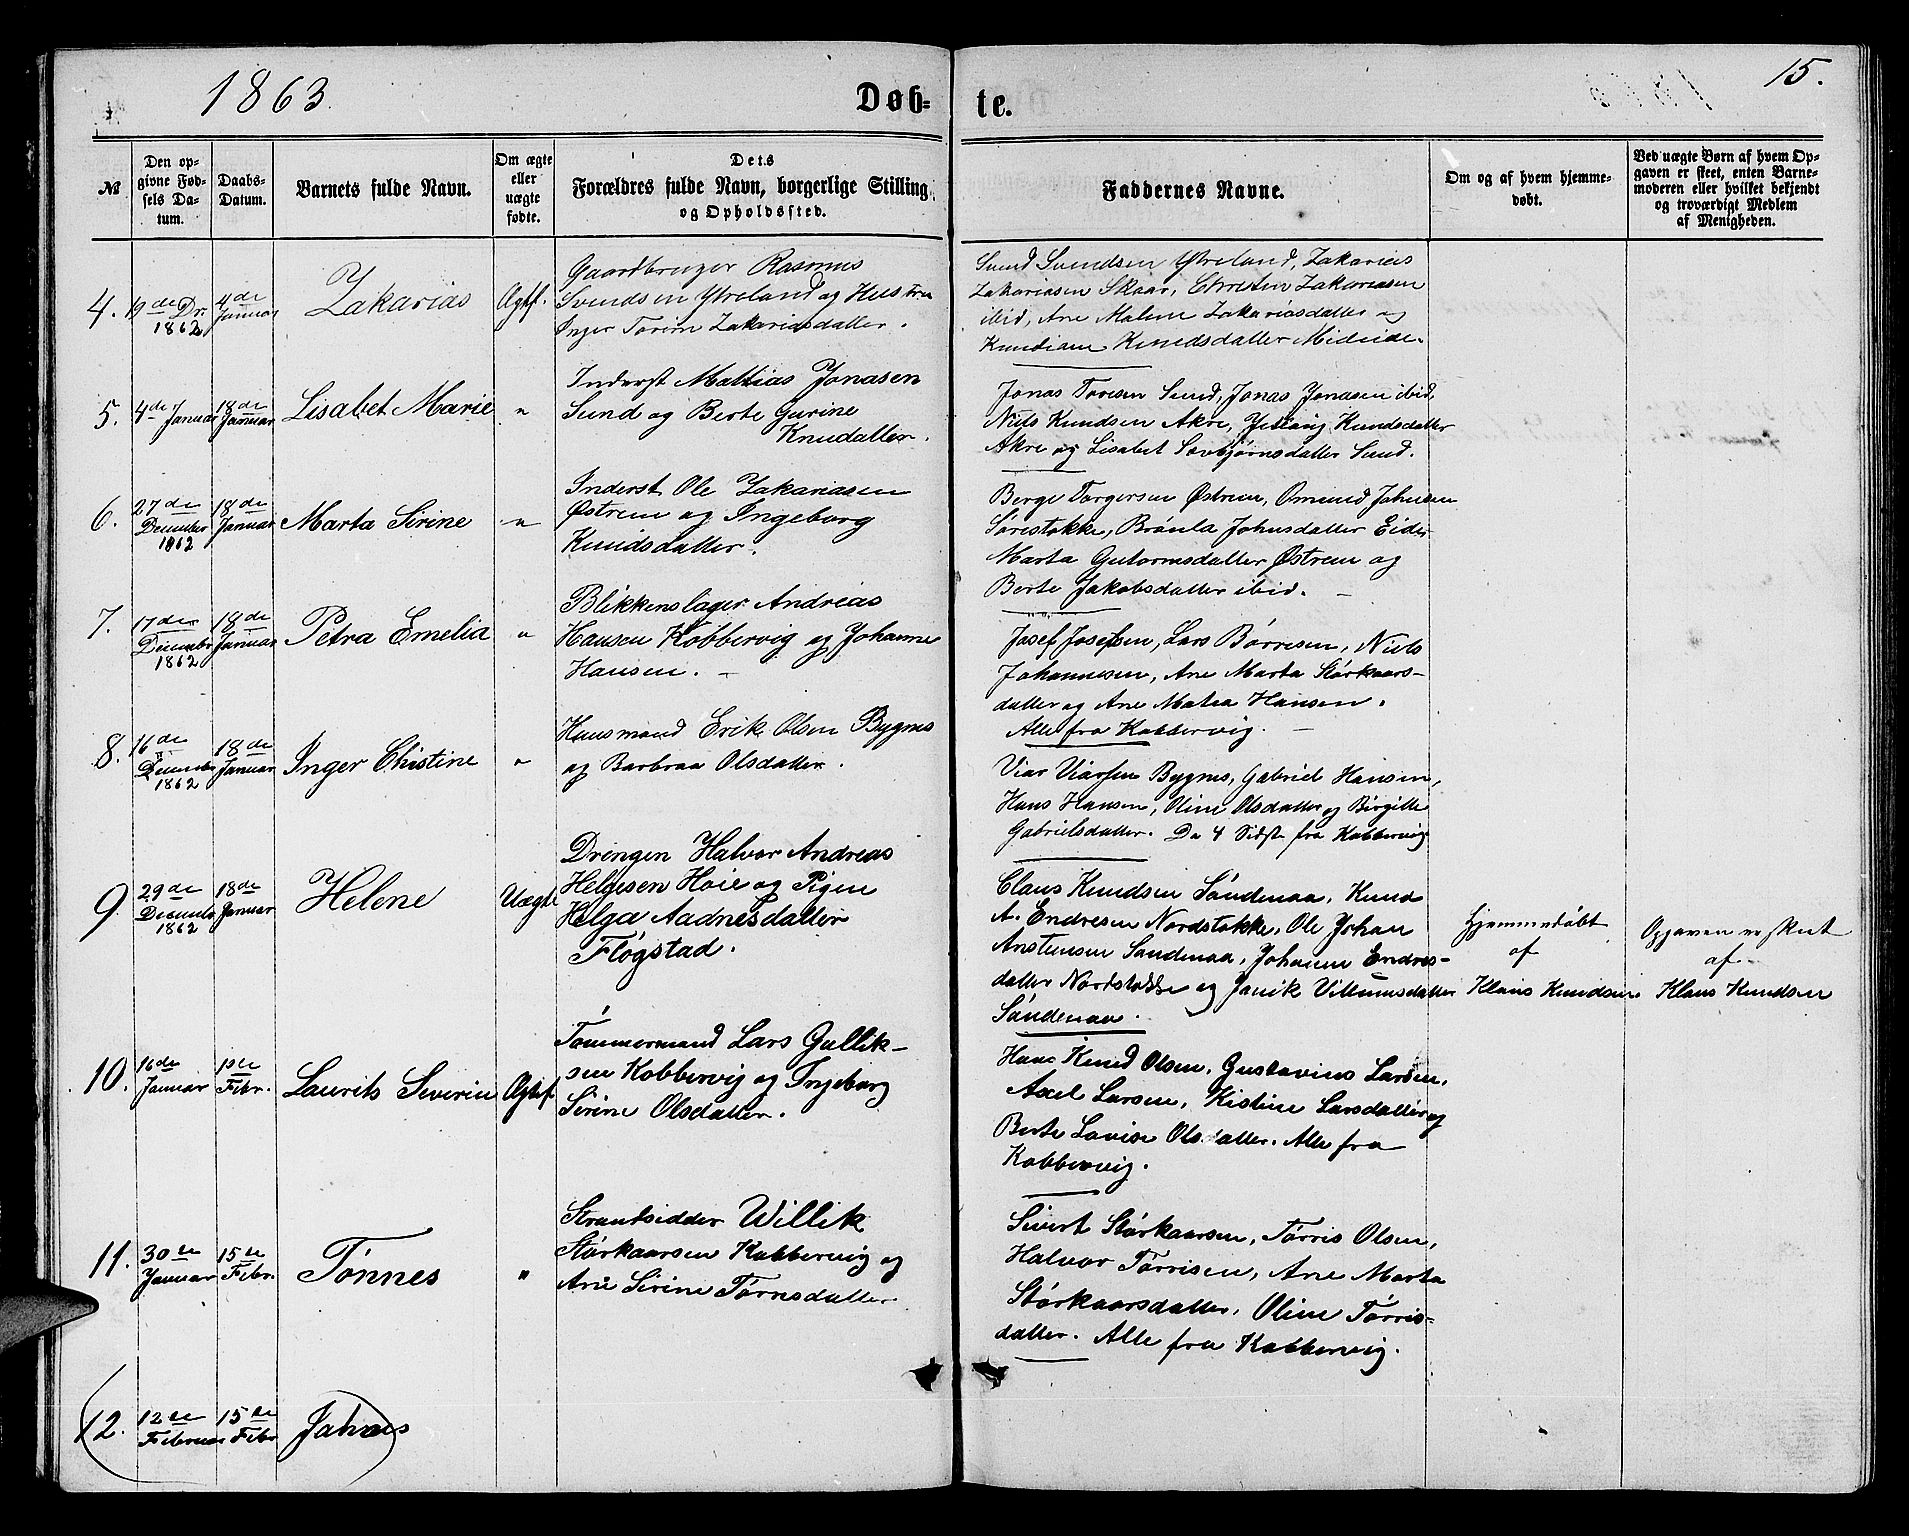 1863.
Døb- te.
15.
№
Den opgivne Fødsels Datum.
Daabs-Datum.
Barnets fulde Navn.
Om ægte eller uægte fødte.
Dets Forældres fulde Navn, borgerlige Stilling og Opholdssted.
Faddernes Navne.
Om og af hvem hjemmedøbt.
Ved uægte Børn af hvem Opgaven er skeet, enten Barnemoderen eller hvilket bekjendt og troværdigt Medlem af Menigheden.
4. 19de Dr. 1862 4de Januar Zakarias Ægtf.
Gaardbruger Rasmus
Svendsen Ytreland og Hustru
Inger Torine Zakariasdatter.
Svend Svendsen Ytreland, Zakarias
Zakariasen Skaar, Christen Zakariasen
ibid, Ane Malene Zakariasdatter og
Knudsdatter Mideide.
5. 4de Januar 18de Januar Lisabet Marie "
Inderst Mattias Jonasen
Sund og Berte Gurine
Knudatter.
Jonas Toresen Sund, Jonas Jonasen ibid,
Niels Knudsen Akre, Knudsdatter
Akre og Lisabet Torbjørnsdatter Sund.
6. 27de December 1862 18de Januar Marta Sirine "
Inderst Ole Zakariasen
Østrem og Ingeborg
Knudsdatter.
Berge Torgersen Østrem, Omund Johnsen
Sørestokke, Brønla Johnsdatter Eide
Marta Gutormsdatter Østrem og
Berte Jakobsdatter ibid.
7. 17de December 1862 18de Januar Petra Emelia "
Blikkenslager Andreas
Hansen Kobbervig og Johanne
Hansen.
Josef Josefsen, Lars Børresen, Niels
Johannesen, Ane Marta Størkaars-
datter og Ane Matea Hansen.
Alle fra Kobbervig.
8. 16de December 1862 18de Januar Inger Chistine "
Husmand Erik Olsen Bygnes
og Barbraa Olsdatter.
Viar Viarsen Bygnes, Gabriel Hansen,
Hans Hansen, Oline Olsdatter og Birgitte
Gabrielsdatter. De 4 Sidste fra Kobbervig
9. 29de December 1862 18de Januar Helene Uægte
Drengen Halvor Andreas
Helgesen Høie og Pigen
Helga Aadnesdatter
Fløgstad.
Claus Knudsen Sandenaa, Knud
A. Endresen Nordstokke, Ole Johan
Anstensen Sandenaa, Johanne Endres-
datter Nordstokke og Janik Villumsdatter
Sandenaa.
Hjemmedøbt
af
Klaus Knudsen
Opgaven er skeet
af
Klaus Knudsen
10. 16de Januar 1ste Febr. Laurits Severin Ægtef.
Tømmermand Lars Gullik-
sen Kobbervig og Ingeborg
Sirine Olsdatter.
Hans Knud Olsen, Gustavius Larsen,
Axel Larsen, Kistine Larsdatter og
Berte Lovise Olsdatter. Alle fra
Kobbervig.
11. 30te Januar 15de Febr. Tønnes "
Strandsidder Willik
Størkaarsen Kobbervig og
Ane Sirine Tørrisdatter.
Sivert Størkaarsen, Tørris Olsen,
Halvor Tørrisen, Ane Marta
Størkaarsdatter, Oline Tørris-
datter. Alle fra Kobbervig.
12. 12te Februar 15de Febr